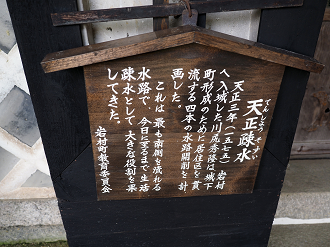 天正疎水
てんしょうそすい
天正三年(一五七五)岩村
へ入城した川尻秀隆は城下
町形成のために居住区を貫
流する四本の水路開削を計
画した。
これは、最も南側を流れる
水路で、今日に至るまで生活
疎水として大きな役割を果
してきた。
岩村町教育委員会